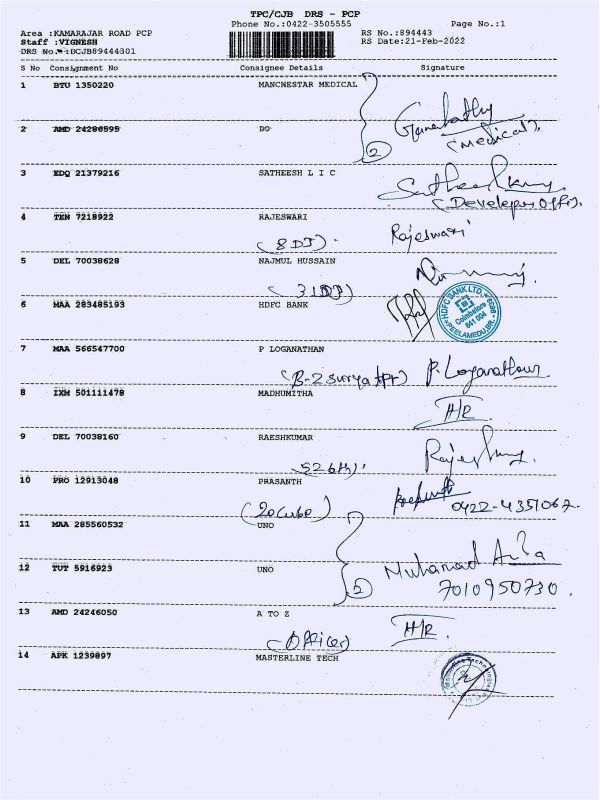 TPC/CJB DRS - PCP
Phone No.:0422-3505555 Page No.:1
Area :KAMARAJAR ROAD PCP RS No.:894443
Staff :VIGNESH RS Date:21-Feb-2022
DRS No. :DCJB89444301
S No Consignment No Consignee Details Signature
1 BTU 1350220 MANCHESTAR MEDICAL
2 AMD 24286595 DO
(Medical).
2
3 EDQ 21379216 SATHEESH L I C
4 TEN 7218922 RAJESWARI
Rajeswari
5 DEL 70038628 NAJMUL HUSSAIN
6 MAA 283485193 HDFC BANK
HDFC BANK LTD.
Coimbatore
641 004
PEELAMEDU BR.
7 MAA 566547700 P LOGANATHAN
P. Loganathan
8 IXM 501111478 MADHUMITHA
H/R
9 DEL 70038160 RAESHKUMAR
10 PRO 12913048 PRASANTH
0422-4351067.
11 MAA 285560532 UNO
12 TUT 5916923 UNO
2
Muhamad
7010950730.
13 AMD 24246050 A TO Z
(Office)
H/R.
14 APK 1239897 MASTERLINE TECH